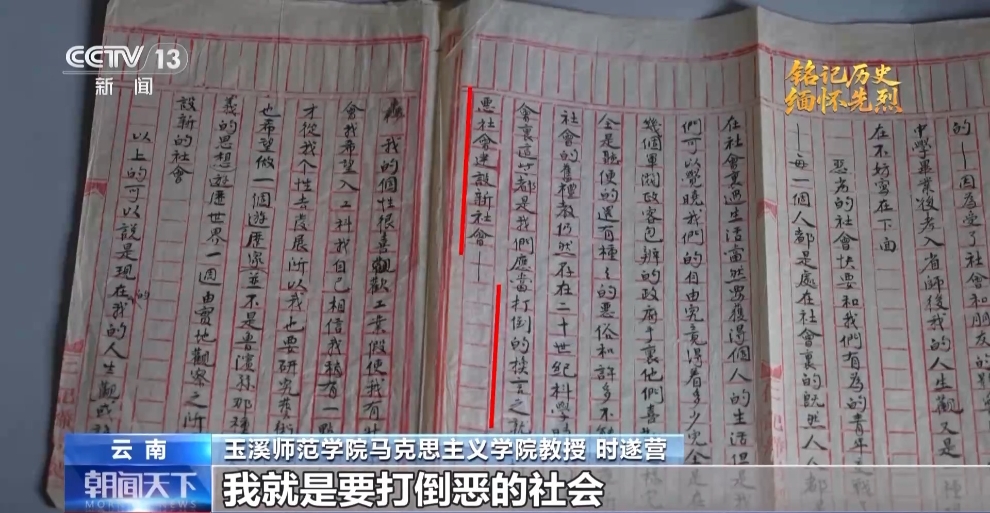 CCTV 13
新闻
铭记历史
缅怀先烈
的—因為受了社會和朋友的
中學畢業後考入省師後我的人生觀又是一種
在不妨寫在下面
惡劣的社會快要和我們有為的青年
—每一個人都是處在社會裏的既然人人都
在社會裏過生活當然要獲得個人的生活但是我
們可以覺晚我們的自由究竟得着多少完全是在
幾個軍閥政客包辦的政府手裏他們喜
全是聽便的還有種々的惡俗和許多不
社會的舊禮教仍然存在二十世紀科學時
會裏這些都是我們應當打倒的換言之就
惡社會建設新社會—
我的個性很喜觀歡工業假使我有
會我希望入工科我自己相信我稍有一點
才從我个性去發展所以我也要研究藝術
也希望做一個遊歷家並不是魯濱孫那種
義的思想遊歷世界一週由實地觀察之所
設新的社會
以上的可以說是現在我的人生觀或
云南
玉溪师范学院马克思主义学院教授 时遂营
朝闻天下
我就是要打倒恶的社会